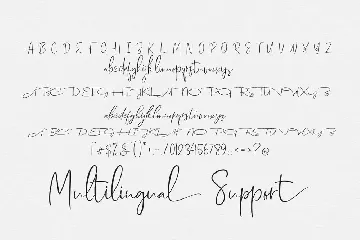 ABCDEFGHIJKLMNOPQRSTUVWXYZ
abcdefghijklmnopqrstuvwxyz
ABCDEFGHIJKLMNOPQRSTUVWXYZ
abcdefghijklmnopqrstuvwxyz
ABCDEFGHIJKLMNOPQRSTUVWXYZ
0123456789
Multilingual Support